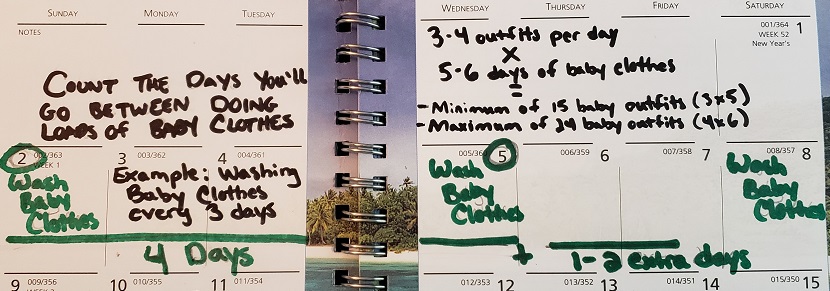 SUNDAY
MONDAY
TUESDAY
WEDNESDAY
THURSDAY
FRIDAY
SATURDAY
NOTES
COUNT THE DAYS YOU'LL
GO BETWEEN DOING
LOADS OF BABY CLOTHES
3-4 outfits per day
X
5-6 days of baby clothes
=
- Minimum of 15 baby outfits (3x5)
- Maximum of 24 baby outfits (4x6)
001/364 1
WEEK 52
New Year's
2 002/363
WEEK 1
Wash
Baby
Clothes
3 003/362
4 004/361
Example: Washing
Baby Clothes
every 3 days
4 Days
005/360 5
Wash
Baby
Clothes
006/359 6
007/358 7
008/357 8
Wash
Baby
Clothes
+ 1-2 extra days
9 009/356
10 010/355
11 011/354
012/353 12
013/352 13
014/351 14
015/350 15